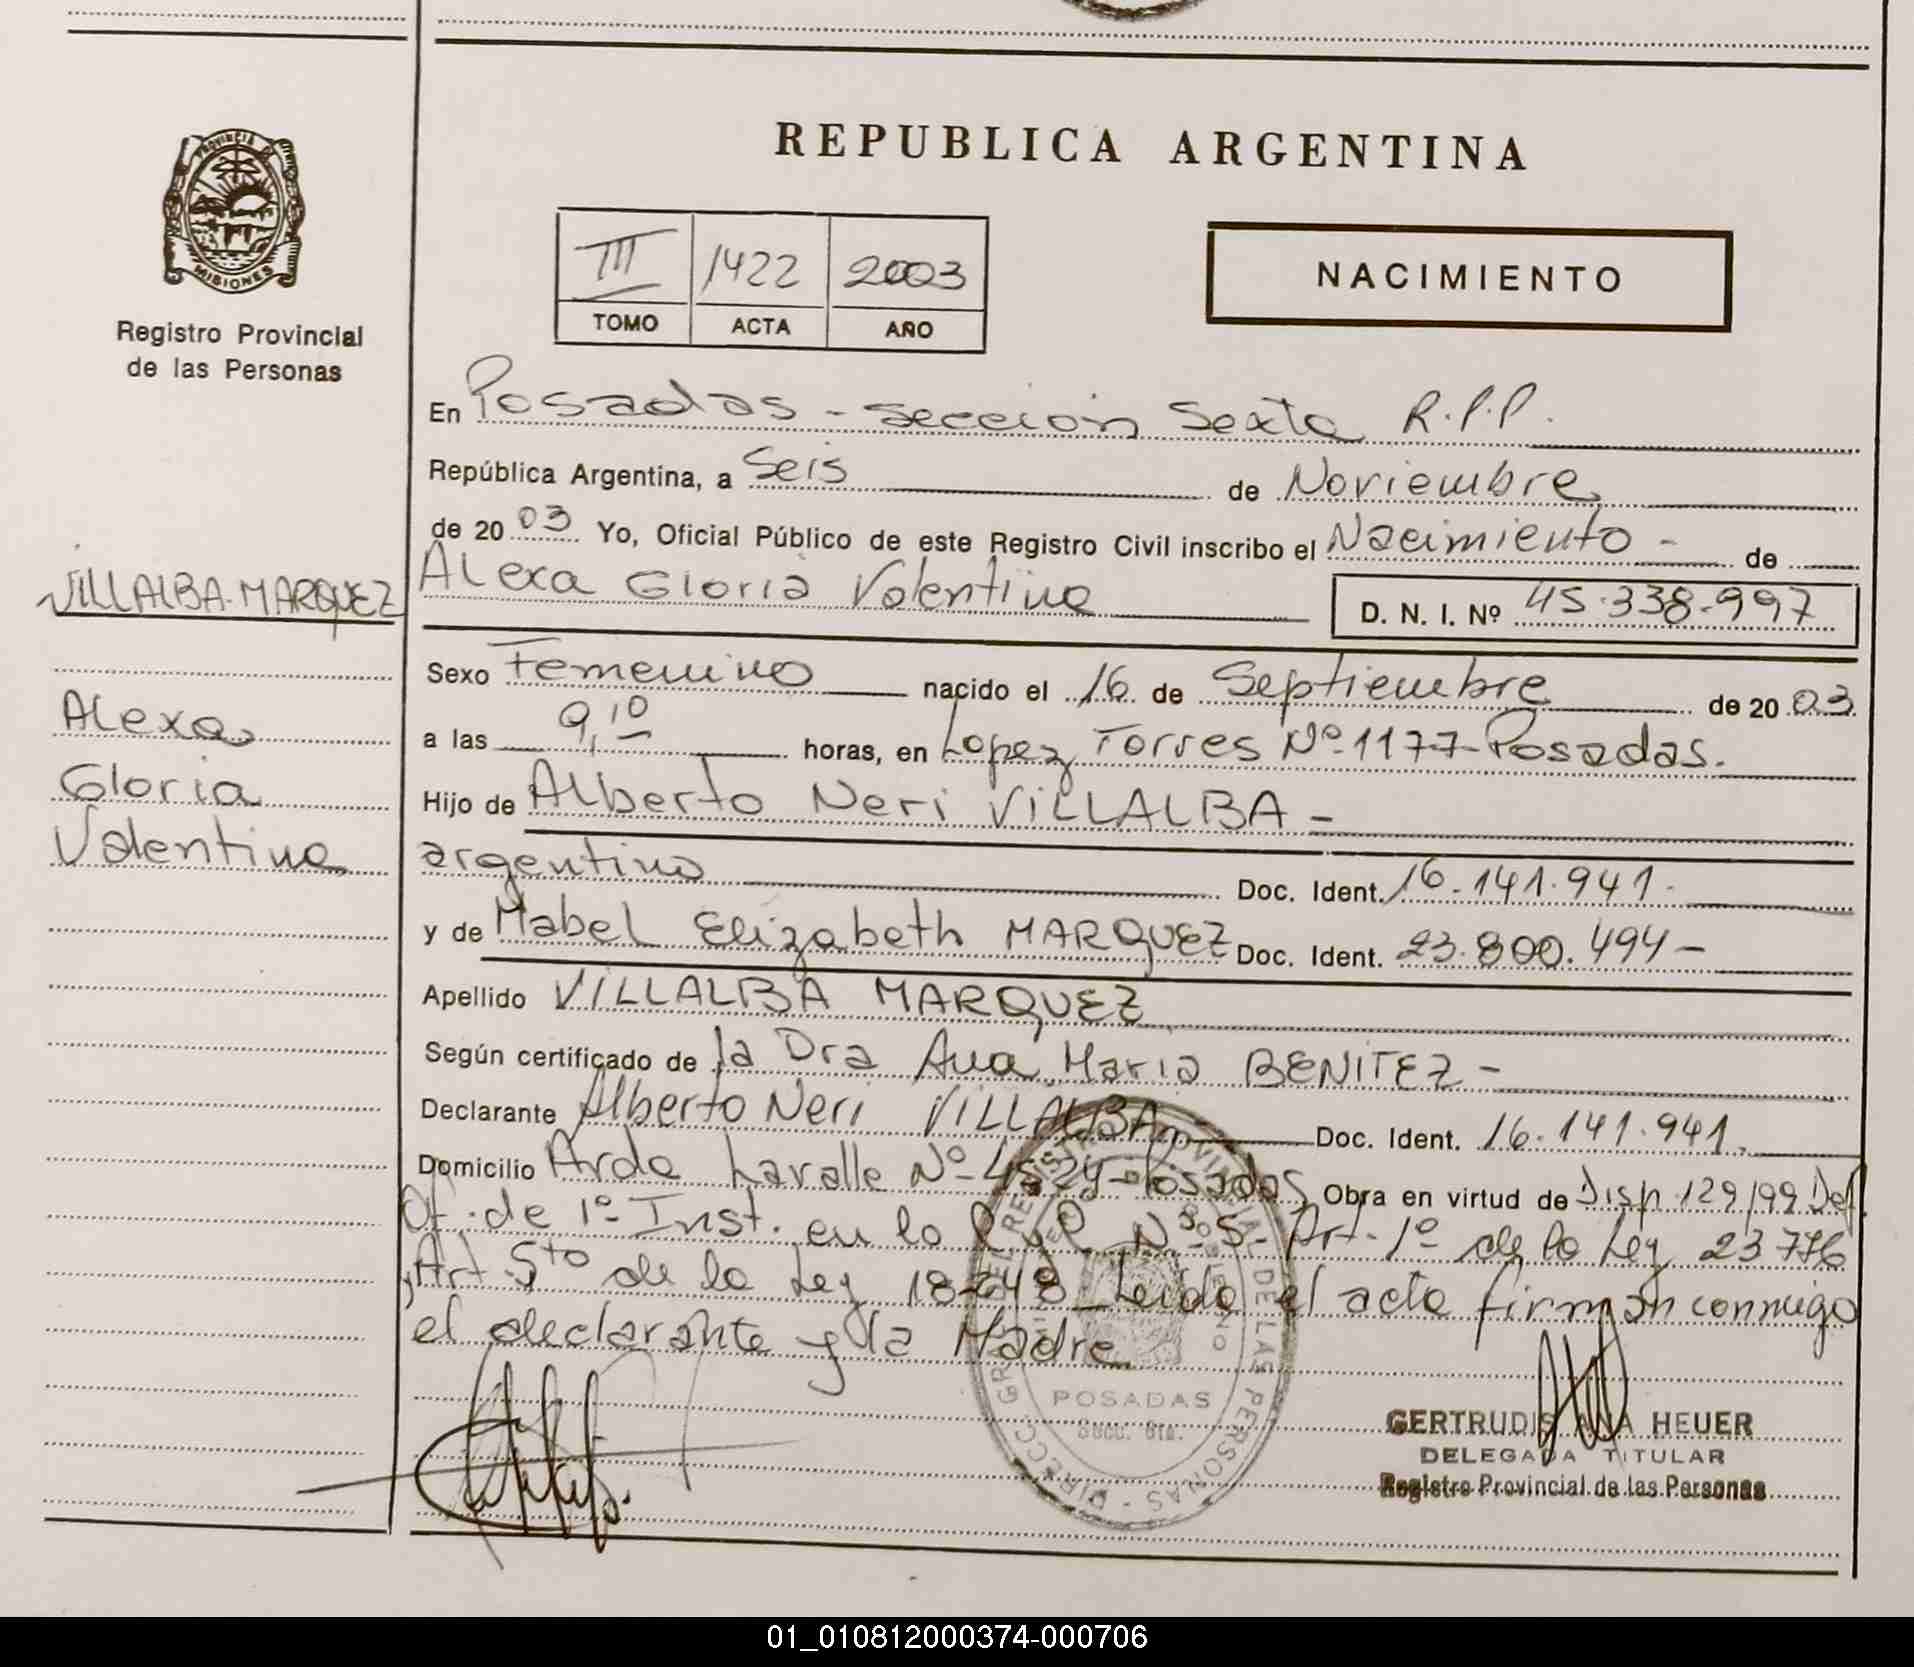 REPUBLICA ARGENTINA
PROVINCIA DE
MISIONES
Registro Provincial
de las Personas
III 1422 2003
TOMO ACTA AÑO
NACIMIENTO
En Posadas - Sección Sexta R.P.P.
República Argentina, a Seis de Noviembre
de 2003 Yo, Oficial Público de este Registro Civil inscribo el Nacimiento - de
VILLALBA-MARQUEZ
Alexa Gloria Valentina D. N. I. Nº 45.338.997
Sexo Femenino nacido el 16 de Septiembre de 2003
Alexa
Gloria
Valentina
a las 9,10 horas, en Lopez Torres Nº 1177-Posadas.
Hijo de Alberto Neri VILLALBA -
argentino Doc. Ident. 16.141.941.
y de Mabel Elizabeth MARQUEZ Doc. Ident. 23.800.494-
Apellido VILLALBA MARQUEZ
Según certificado de la Dra Ana Maria BENITEZ -
Declarante Alberto Neri VILLALBA Doc. Ident. 16.141.941.
Domicilio Avda Lavalle Nº 4524-Posadas Obra en virtud de Disp. 129/99 Def.
Of. de 1º Inst. en lo Nº 5- Art. 1º de la Ley 23776
, Art 5to de la Ley 18248 Leida el acta firman conmigo
el declarante y la Madre
POSADAS
Secc. 6ta.
GERTRUDIS ANA HEUER
DELEGADA TITULAR
Registro Provincial de las Personas
01_010812000374-000706